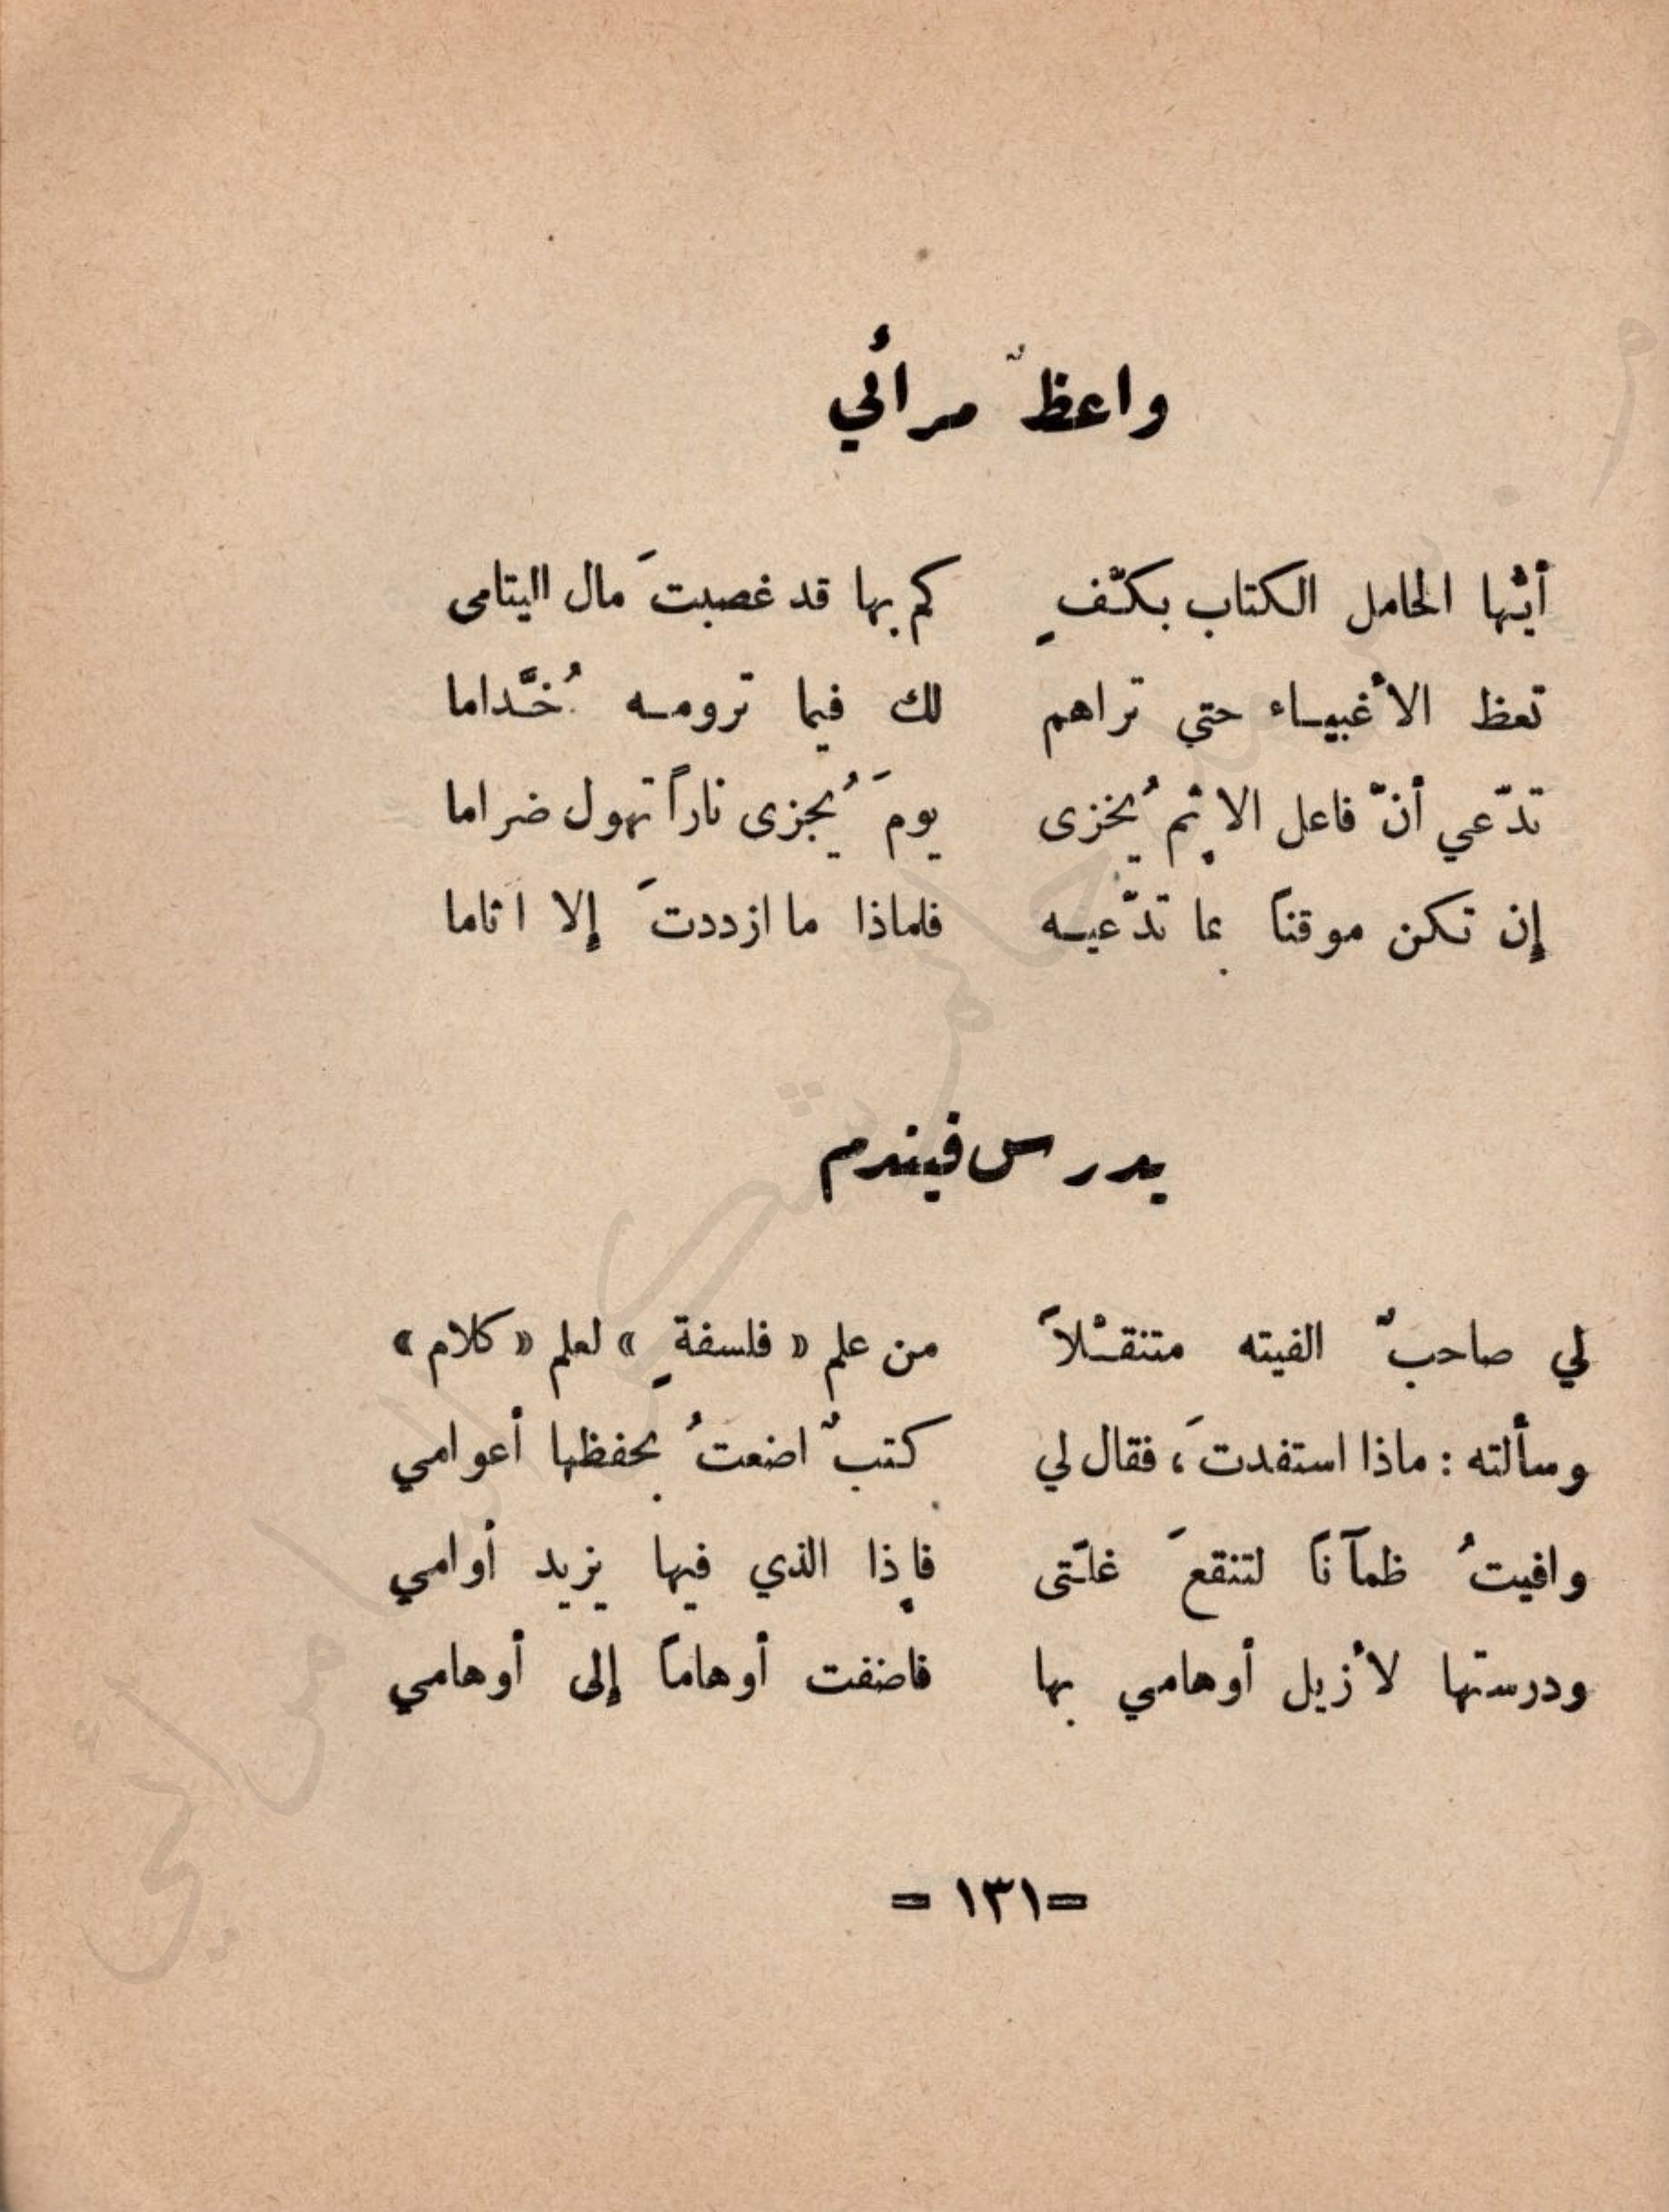 واعظٌ مرائي
أيّها الحامل الكتاب بكفٍّ كم بها قد غصبتَ مال اليتامى
تعظ الأغبياء حتى تراهم لك فيما ترومه خُدَّاما
تدّعي أنّ فاعل الإثم يُخزى يومَ يُجزى ناراً تهول ضراما
إن تكن موقناً بما تدّعيه فلماذا ما ازددتَ إلا اثاما
يدرس فيندم
لي صاحبٌ الفيته متنقّلاً من علم « فلسفةٍ » لعلم « كلام »
وسألته : ماذا استفدتَ ، فقال لي كتبٌ اضعتُ بحفظها أعوامي
وافيتُ ظمآناً لتنقعَ غلّتى فإذا الذي فيها يزيد أوامي
ودرستها لأزيل أوهامي بها فاضفت أوهاماً إلى أوهامي
= ١٣١ =